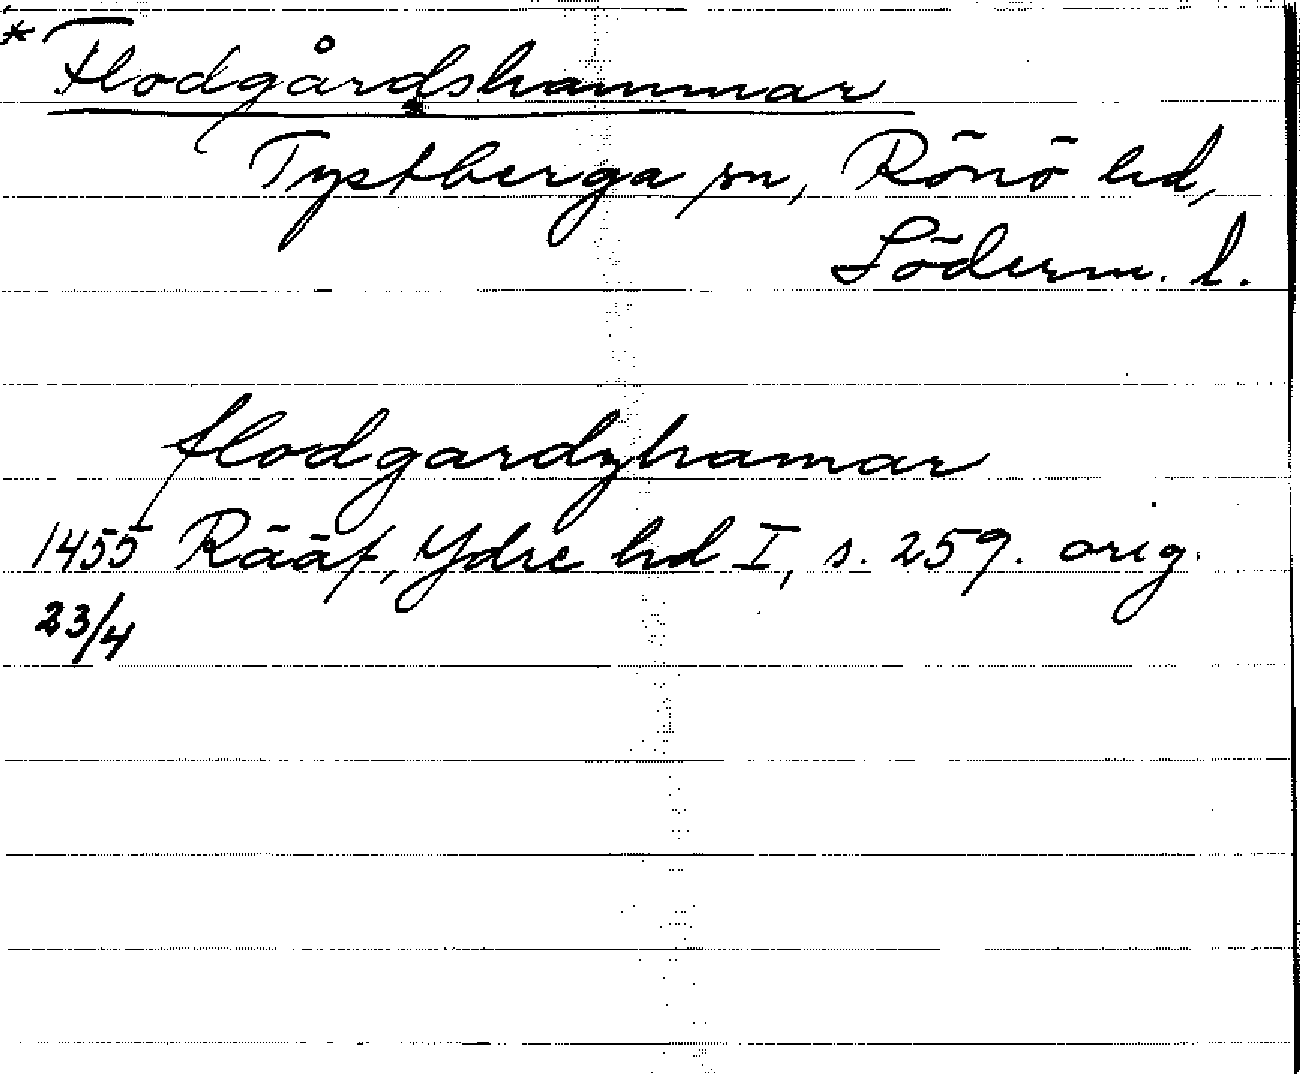 *Flodgårdshammar
Tystberga sn, Rönö hd,
Söderm. l.
flodgardzhamar
1455 Rääf, Ydre hd I, s. 259. orig.
23/4